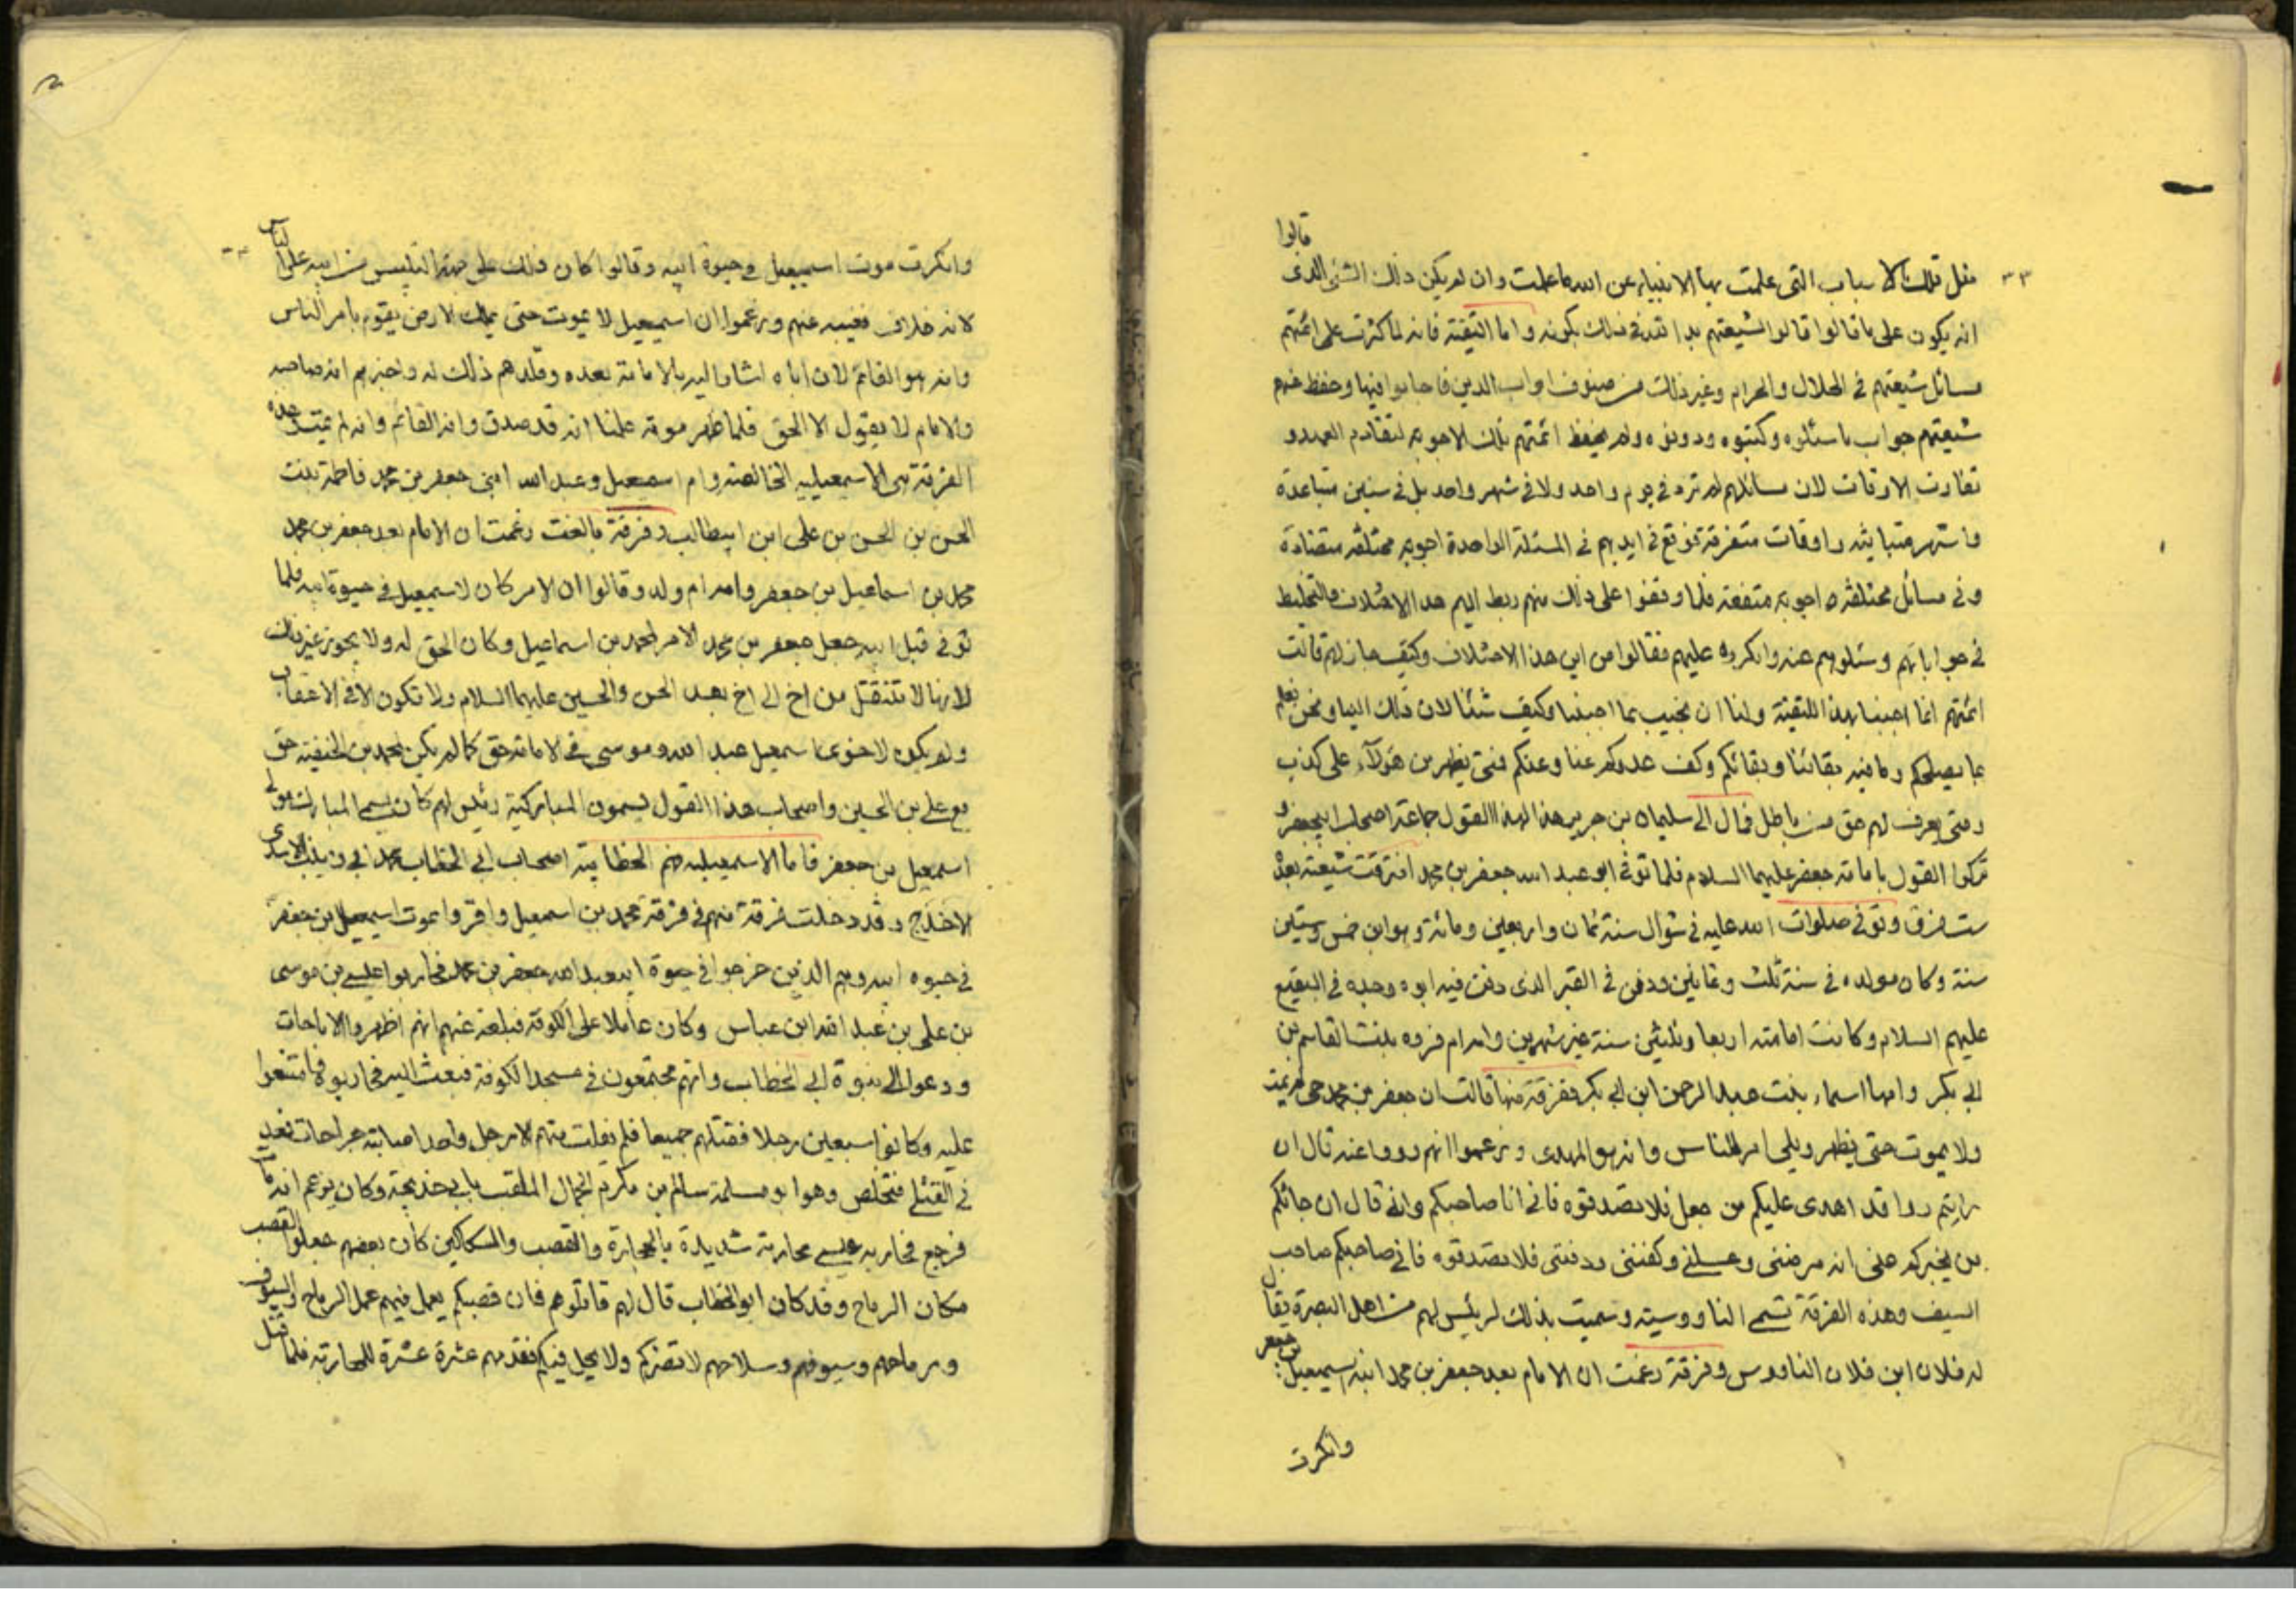 قالوا
مثل تلك الاسباب التى علمت بها الانبياء عن الله ما علمت وان لم يكن ذلك الشئ الذى
انه يكون على ما قالوا قالوا لشيعتهم بدا لله فى ذلك بكونه واما التقية فانه لما كثرت على ائمتهم
مسائل شيعتهم فى الحلال والحرام وغير ذلك من صنوف ابواب الدين فاجابوا فيها وحفظ عنهم
شيعتهم جواب ما سئلوه وكتبوه ودونوه ولم يحفظ ائمتهم تلك الاجوبه لتقادم العهد و
تفاوت الاوقات لان مسائلهم لم ترد فى يوم واحد ولا فى شهر واحد بل فى سنين متباعدة
واشهر متباينه واوقات متفرقة فوقع فى ايديهم فى المسئلة الواحدة اجوبه مختلفه متضادة
وفى مسائل مختلفه اجوبه متفقة فلما وقفوا على ذلك منهم ردوا اليهم هذا الاختلاف والتخليط
فى جواباتهم وسئلوهم عنه وانكروه عليهم فقالوا من اين هذا الاختلاف وكيف جاز لهم قالت
ائمتهم انما اجبنا بهذا للتقية ولنا ان نجيب بما اجبنا وكيف شئنا لان ذلك الينا ونحن نعلم
بما يصلحكم وما فيه بقائنا وبقائكم وكف عدوكم عنا وعنكم فمتى يظهر من هولاء على كذب
ومتى يعرف لهم حق من باطل فمال الى سليمان بن جرير هذا لهذا القول جماعة من اصحاب ابيجعفر و
تركوا القول بامامة جعفر عليهما السلام فلما توفى ابو عبد الله جعفر بن محمد افترقت شيعته بعده
ست فرق وتوفى صلوات الله عليه فى شوال سنة ثمان واربعين ومائة وهو ابن خمس وستين
سنة وكان مولده فى سنة ثلث وثمانين ودفن فى القبر الذى دفن فيه ابوه وجده فى البقيع
عليهم السلام وكانت امامته اربعا وثلثين سنة غير شهرين وامه ام فروه بنت القاسم بن
ابى بكر وامها اسماء بنت عبد الرحمن ابن ابى بكر ففرقة منها قالت ان جعفر بن محمد حى لم يمت
ولا يموت حتى يظهر ويلى امر الناس وانه هو المهدى وزعموا انهم رووا عنه قال ان
رايتم رداً قد اهدى عليكم من جبل فلا تصدقوه فانى انا صاحبكم وانه قال ان جائكم
من يخبركم عنى انه مرضنى وغسلنى وكفننى ودفننى فلا تصدقوه فانى صاحبكم صاحب
السيف وهذه الفرقة تسمى الناووسيه وسميت بذلك لرئيس لهم من اهل البصرة يقال
له فلان ابن فلان الناووس وفرقة زعمت ان الامام بعد جعفر بن محمد ابنه اسمعيل بن جعفر
وانكرت
وانكرت موت اسمعيل فى حيوة ابيه وقالوا كان ذلك على جهة التلبيس من ابيه على الناس
لانه خاف فغيبه عنهم وزعموا ان اسمعيل لا يموت حتى يملك الارض يقوم بامر الناس
وانه هو القائم لان اباه اشار اليه بالامامة بعده وقلدهم ذلك له واخبرهم انه صاحبه
والامام لا يقول الا الحق فلما ظهر موته علمنا انه قد صدق وانه القائم وانه لم يمت وهذه
الفرقة هى الاسمعيليه الخالصه وام اسمعيل وعبد الله ابنى جعفر بن محمد فاطمة بنت
الحسن بن الحسن بن على ابن ابيطالب وفرقة ثالثة زعمت ان الامام بعد جعفر بن محمد
محمد بن اسماعيل بن جعفر وامه ام ولد وقالوا ان الامر كان لاسمعيل فى حيوة ابيه فلما
توفى قبل ابيه جعل جعفر بن محمد الامر لمحمد بن اسماعيل وكان الحق له ولا يجوز غير ذلك
لانها لا تنتقل من اخ الى اخ بعد الحسن والحسين عليهما السلام ولا تكون الا فى الاعقاب
ولم يكن لاخوى اسمعيل عبد الله وموسى فى الامامة حق كما لم يكن لمحمد بن الحنفيه حق
مع على بن الحسين واصحاب هذا القول يسمون المباركية رئيس لهم كان يسمى المبارك مولى
اسمعيل بن جعفر فاما الاسمعيليه فهم الخطابيه اصحاب ابى الخطاب محمد ابى زينب الاسدى
الاجدع وقد دخلت فرقة منهم فى فرقة محمد بن اسمعيل واقروا بموت اسمعيل بن جعفر
فى حيوه ابيه وهم الذين خرجوا فى حيوة ابيعبد الله جعفر بن محمد فحاربوا عيسى بن موسى
بن على بن عبد الله ابن عباس وكان عاملا على الكوفة فبلغه عنهم انهم اظهروا الاباحات
ودعوا الى نبوة ابى الخطاب وانهم مجتمعون فى مسجد الكوفة فبعث اليهم فحاربوه وامتنعوا
عليه وكانوا سبعين رجلا فقتلهم جميعا فلم يفلت منهم الا رجل واحد اصابته جراحات فعد
فى القتلى فتخلص وهو ابو سلمة سالم بن مكرم الجمال الملقب بابى خديجة وكان يزعم انه مات
فرجع فحاربه عيسى محاربة شديدة بالحجارة والقصب والسكاكين كان بعضهم جعلوا القصب
مكان الرماح وقد كان ابو الخطاب قال لهم قاتلوهم فان قصبكم يعمل فيهم عمل الرماح والسيوف
ورماحهم وسيوفهم وسلاحهم لا تضركم ولا يحل فيكم فقدمهم عشرة عشرة للمحاربة فلما قتل